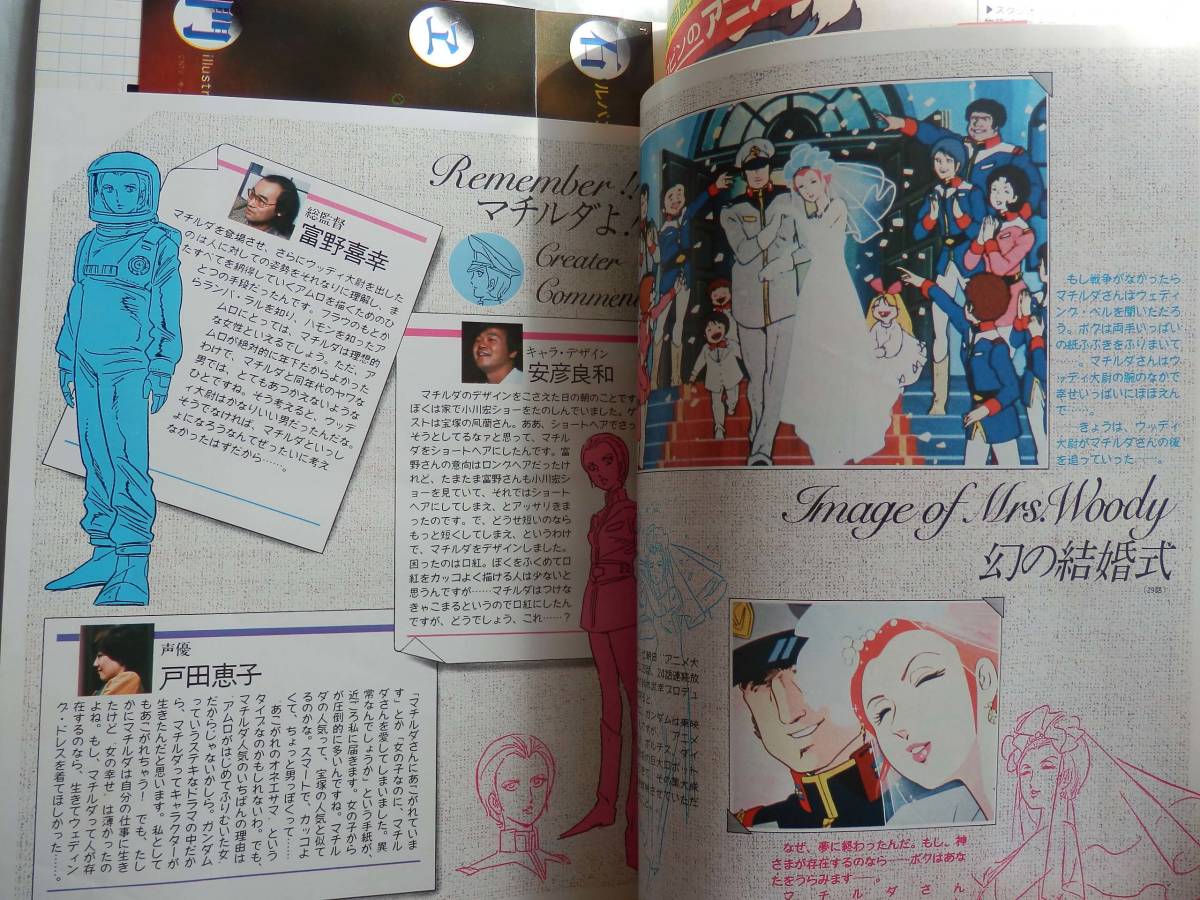 石
エ
門
ルパ
illustr
ンの
アニメ
Remember!
マチルダよ!
Creater
Comment
総監督
富野喜幸
マチルダを登場させ、さらにウッディ大尉を出した
のは人に対しての姿勢をそれなりに理解し、ま
たすべてを納得していくアムロを描くためのひ
とつの手段だったんです。フラウのもとか
らランバ・ラルを知り、ハモンを知ったア
ムロにとっては、マチルダは理想的
な女性といえるでしょう。ただ、ア
ムロが絶対的に年下だからよかった
わけで、マチルダと同年代のヤワな
男では、とてもあつかえないような
ひとですね。そう考えると、ウッデ
ィ大尉はかなりいい男だったんだな。
そうでなければ、マチルダといっし
ょになろうなんてぜったいに考え
なかったはずだから……。
キャラ・デザイン
安彦良和
マチルダのデザインをこさえた日の朝のことです
ぼくは家で小川宏ショーをたのしんでいました。ゲ
ストは宝塚の鳳蘭さん。ああ、ショートヘアでさっ
そうとしてるなァと思って、マチル
ダをショートヘアにしたんです。富
野さんの意向はロングヘアだったけ
れど、たまたま富野さんも小川宏シ
ョーを見ていて、それではショート
ヘアにしてしまえ、とアッサリきま
ったのです。で、どうせ短いのなら
もっと短くしてしまえ、というわけ
で、マチルダをデザインしました。
困ったのは口紅。ぼくをふくめて口
紅をカッコよく描ける人は少ないと
思うんですが……マチルダはつけな
きゃこまるというので口紅にしたん
ですが、どうでしょう、これ……?
声優
戸田恵子
「マチルダさんにあこがれていま
す」とか「女の子なのに、マチル
ダさんを愛してしまいました。異
常なんでしょうか」という手紙が、
近ごろ私に届きます。女の子から
が圧倒的に多いんですね。マチル
ダの人気って、宝塚の人気と似て
るのかな。スマートで、カッコよ
くって、ちょっと男っぽくって……
あこがれのオネエサマ という
タイプなのかもしれないわ。でも、
マチルダ人気のいちばんの理由は
「アムロがはじめてふりむいた女」
だからじゃないかしら。ガンダム
っていうステキなドラマの中だか
ら、マチルダってキャラクターが
生きたんだと思います。私として
もあこがれちゃう! でも、たし
かにマチルダは自分の仕事に生き
たけど 女の幸せ は薄かったの
よね。もし、マチルダって人が存
在するのなら、生きてウェディン
グ・ドレスを着てほしかった……。
もし戦争がなかったら
マチルダさんはウェディ
ング・ベルを聞いただろ
う。ボクは両手いっぱい
の紙ふぶきをふりまいて
……。マチルダさんはウ
ッディ大尉の腕のなかで
幸せいっぱいにほほえん
で……。
……きょうは、ウッディ
大尉がマチルダさんの後
を追っていった——。
Image of Mrs.Woody
幻の結婚式
(29話)
アニメ大
24話連続放
プロデュ
ガンダムは東映
アニメ
ボルテス、ダイ
巨大ロボット
その集大成
させていただ
なぜ、夢に終わったんだ。もし、神
さまが存在するのなら——ボクはあな
たをうらみます——。
マチルダさん